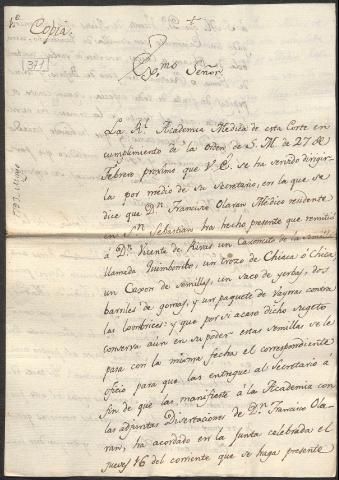 Copia.
371
Exmo. Señor.
La Rl. Academia Medica de esta Corte en
cumplimiento de la Orden de S. M. de 27 de
Febrero proximo que V. E. se ha servido dirigir-
la por medio de su Secretario, en la que se
dice que Dn. Francisco Olaran Medico residente
en Sn. Sebastian ha hecho presente que remitió
á Dn. Vicente de Rivas un Caxoncito de la semilla
llamada Quimbombo, un trozo de Chiaca ó Chica,
un Caxon de semillas, un saco de yerbas, dos
barriles de gomas, y un paquete de Vayrras contra
las lombrices: y que por si acaso dicho sugeto
conserva aun en su poder estas semillas se le
pasa con la misma fecha el correspondiente
oficio para que las entregue al Secretario á
fin de que las manifieste á la Academia con
las adjuntas Disertaciones de Dn. Francisco Ola-
ran, ha acordado en la Junta celebrada el
jueves 16 del corriente que se haga presente